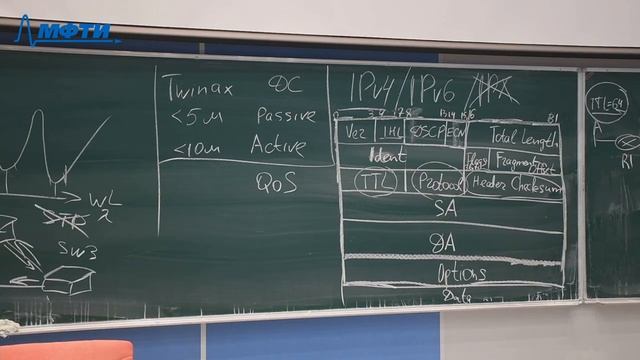 МФТИ
Twinax DC
<5м Passive
<10м Active
QoS
WL
λ
STP
SW3
IPv4/IPv6/IPX
0 3 4 7 8 13 14 15 16 31
Ver IHL DSCP ECN Total Length
Ident Flags Fragment Offset
TTL Protocol Header Checksum
SA
DA
Options
Data
TTL=64
R1